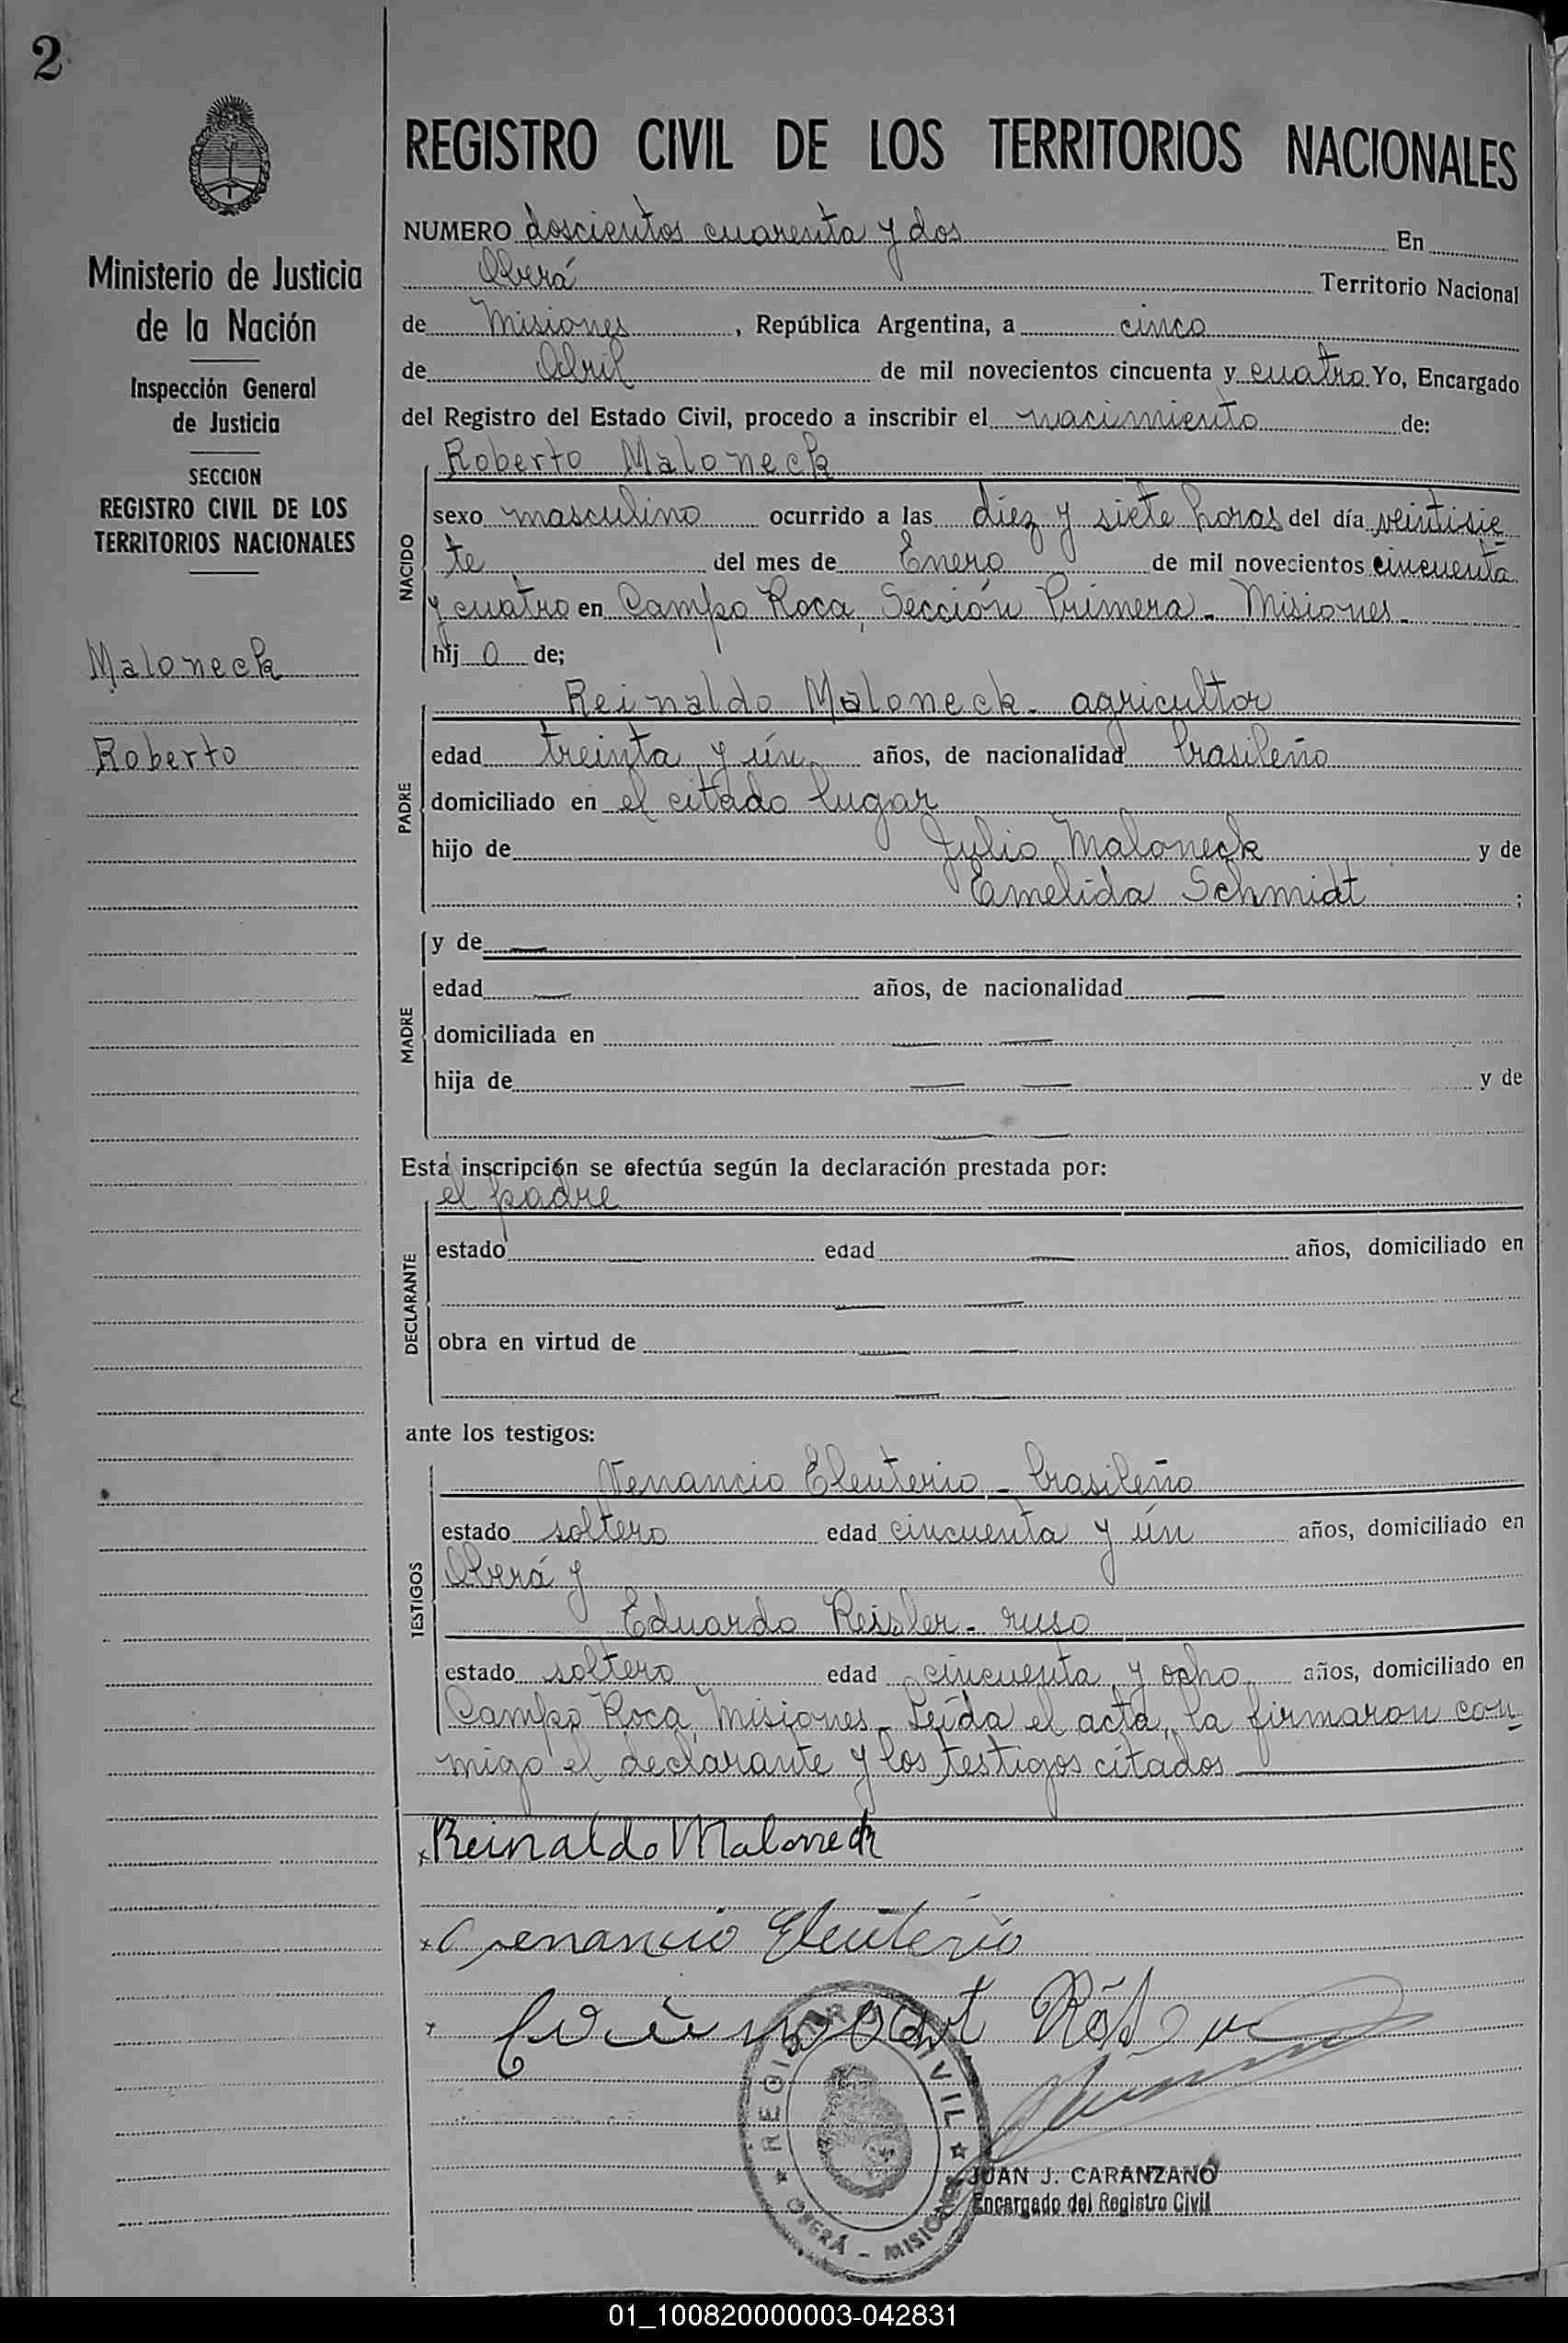 2
Ministerio de Justicia
de la Nación
Inspección General
de Justicia
SECCION
REGISTRO CIVIL DE LOS
TERRITORIOS NACIONALES
Maloneck
Roberto
REGISTRO CIVIL DE LOS TERRITORIOS NACIONALES
NUMERO doscientos cuarenta y dos En
Oberá Territorio Nacional
de Misiones, República Argentina, a cinco
de Abril de mil novecientos cincuenta y cuatro Yo, Encargado
del Registro del Estado Civil, procedo a inscribir el nacimiento de:
Roberto Maloneck
NACIDO
sexo masculino ocurrido a las diez y siete horas del día veintisie
te del mes de Enero de mil novecientos cincuenta
y cuatro en Campo Roca, Sección Primera - Misiones -
hij o de;
Reinaldo Maloneck - agricultor
PADRE
edad treinta y ún años, de nacionalidad brasileño
domiciliado en el citado lugar
hijo de Julio Maloneck y de
Emelida Schmidt ;
y de —
MADRE
edad — años, de nacionalidad —
domiciliada en — —
hija de — — y de
— —
Esta inscripción se efectúa según la declaración prestada por:
el padre
DECLARANTE
estado — edad — años, domiciliado en
— —
obra en virtud de — —
— —
ante los testigos:
Venancio Eleuterio - brasileño
TESTIGOS
estado soltero edad cincuenta y ún años, domiciliado en
Oberá y
Eduardo Reisler - ruso
estado soltero edad cincuenta y ocho años, domiciliado en
Campo Roca, Misiones - Leída el acta, la firmaron con
migo el declarante y los testigos citados
x Reinaldo Maloneck
x Venancio Eleuterio
x
REGISTRO CIVIL
OBERÁ - MISIONES
JUAN J. CARANZANO
Encargado del Registro Civil
01_100820000003-042831